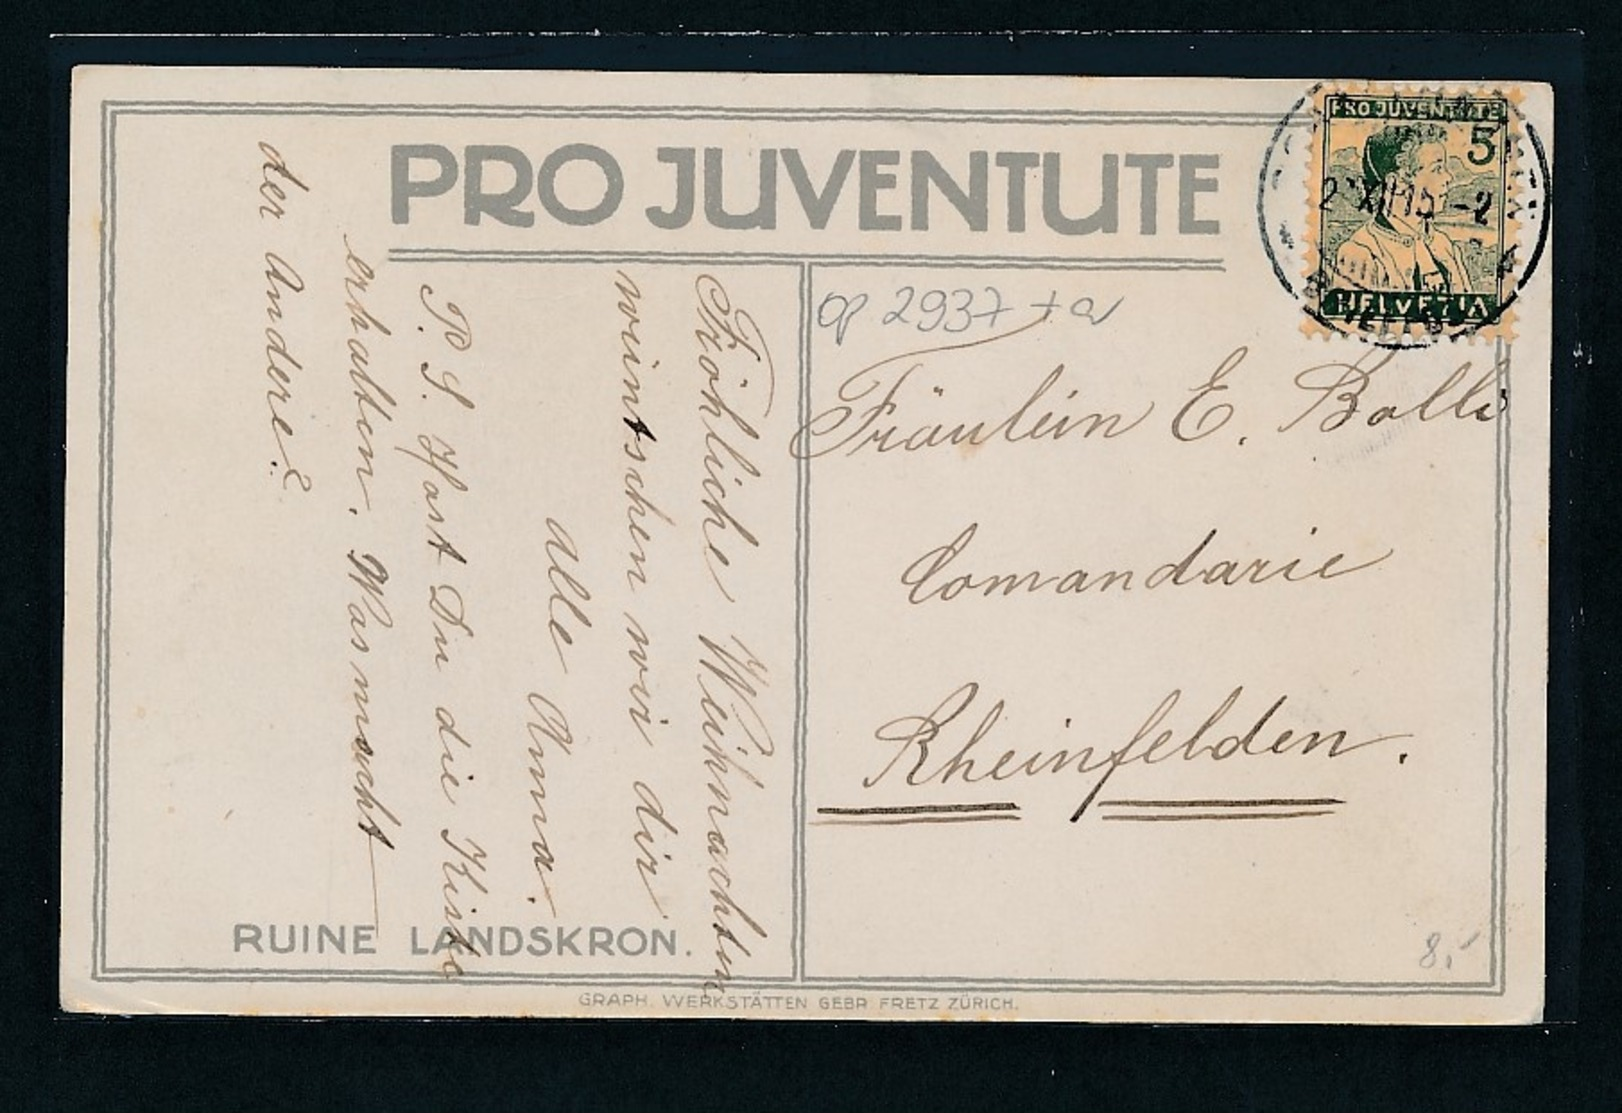 PRO JUVENTUTE
PRO JUVENTUTE
5
HELVETIA
XII 15
2937 + a
Fräulein E. Bolli
Comandarie
Rheinfelden.
Fröhliche Weihnachten
wüntschen wir dir
alle Anna.
P. S. Hast Du die Kiste
erhalten. Was macht
der Andere?
RUINE LANDSKRON.
GRAPH. WERKSTÄTTEN GEBR. FRETZ ZÜRICH.
8.-